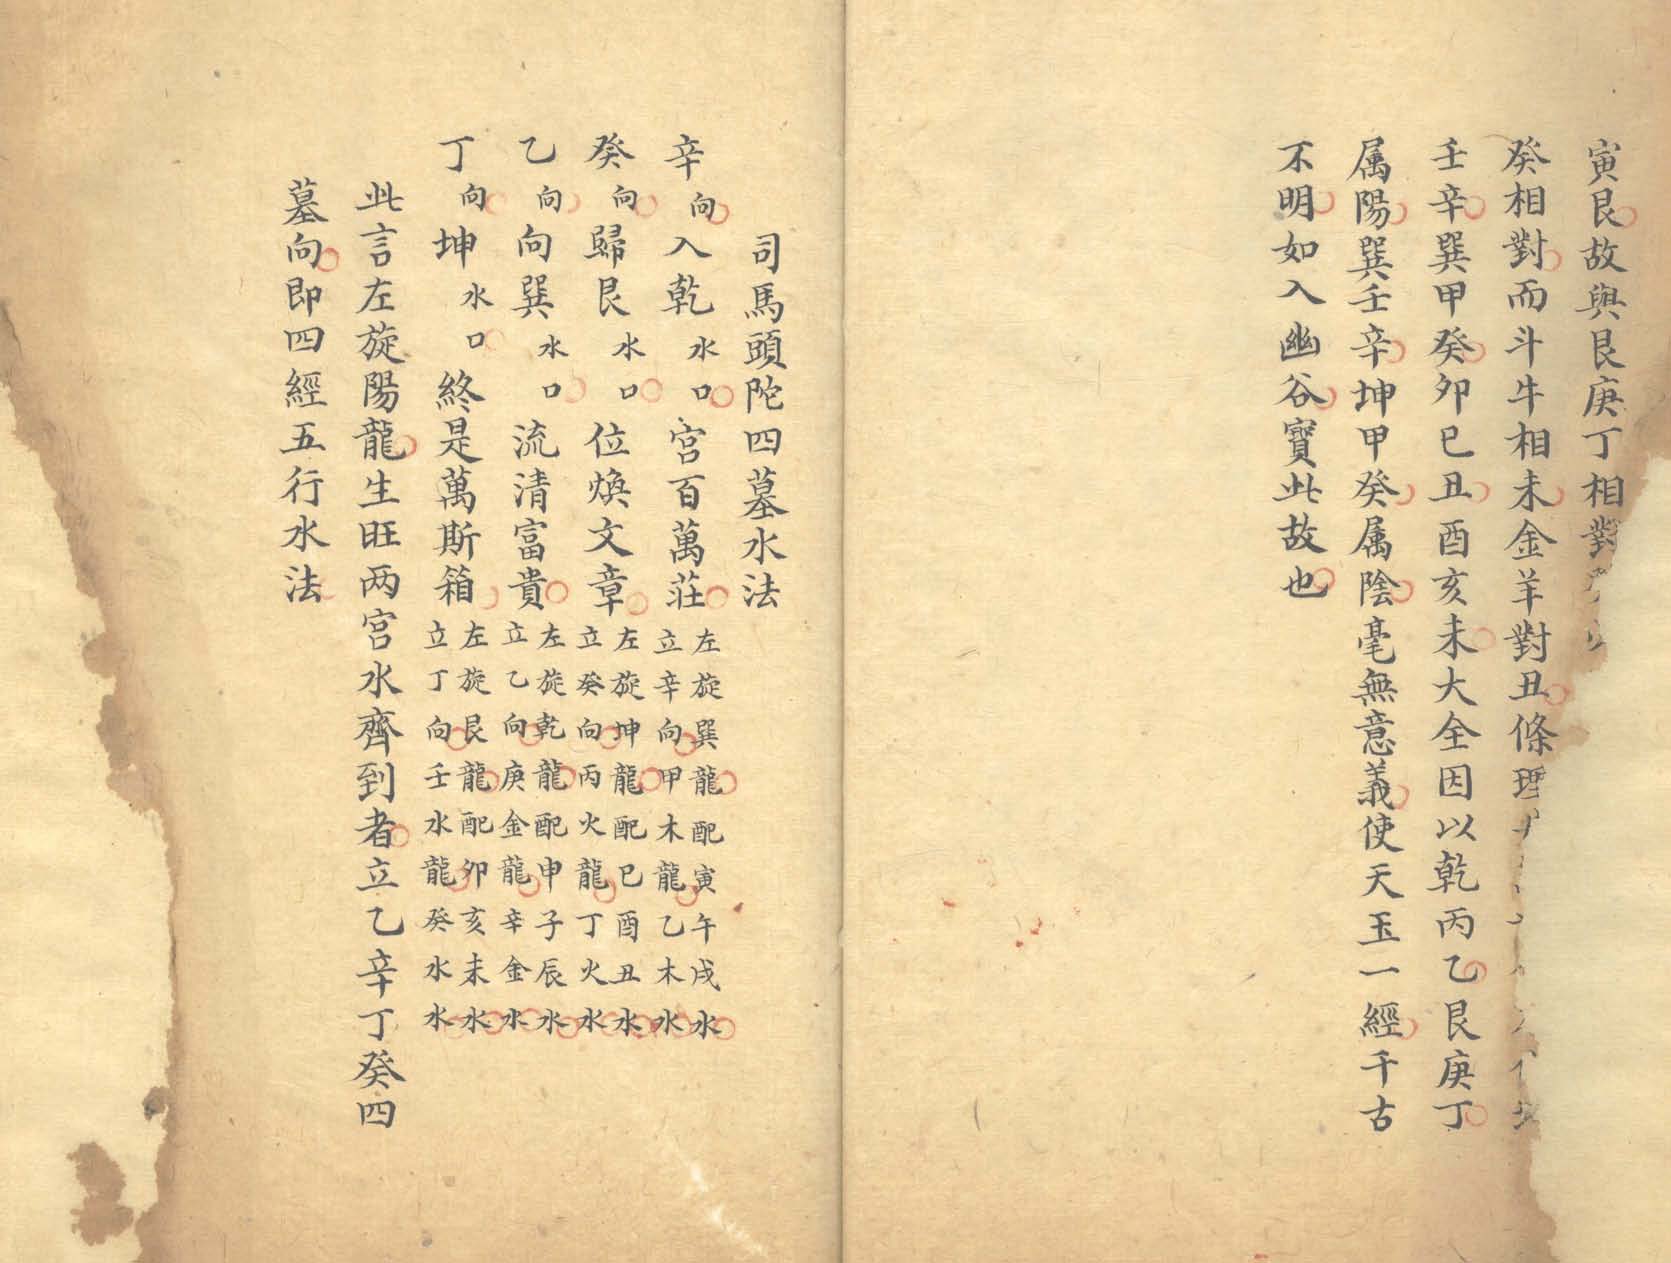 寅艮故與艮庚丁相對
癸相對而斗牛相未金羊對丑條理
壬辛巽甲癸卯巳丑酉亥未大全因以乾丙乙艮庚丁
属陽巽壬辛坤甲癸属陰毫無意義使天玉一經千古
不明如入幽谷寶此故也
司馬頭陀四墓水法
辛向入乾水口宮百萬莊左旋巽龍配寅午戌水立辛向甲木龍乙木水
癸向歸艮水口位煥文章左旋坤龍配巳酉丑水立癸向丙火龍丁火水
乙向向巽水口流清富貴左旋乾龍配申子辰水立乙向庚金龍辛金水
丁向坤水口終是萬斯箱左旋艮龍配卯亥未水立丁向壬水龍癸水水
此言左旋陽龍生旺两宮水齊到者立乙辛丁癸四
墓向即四經五行水法